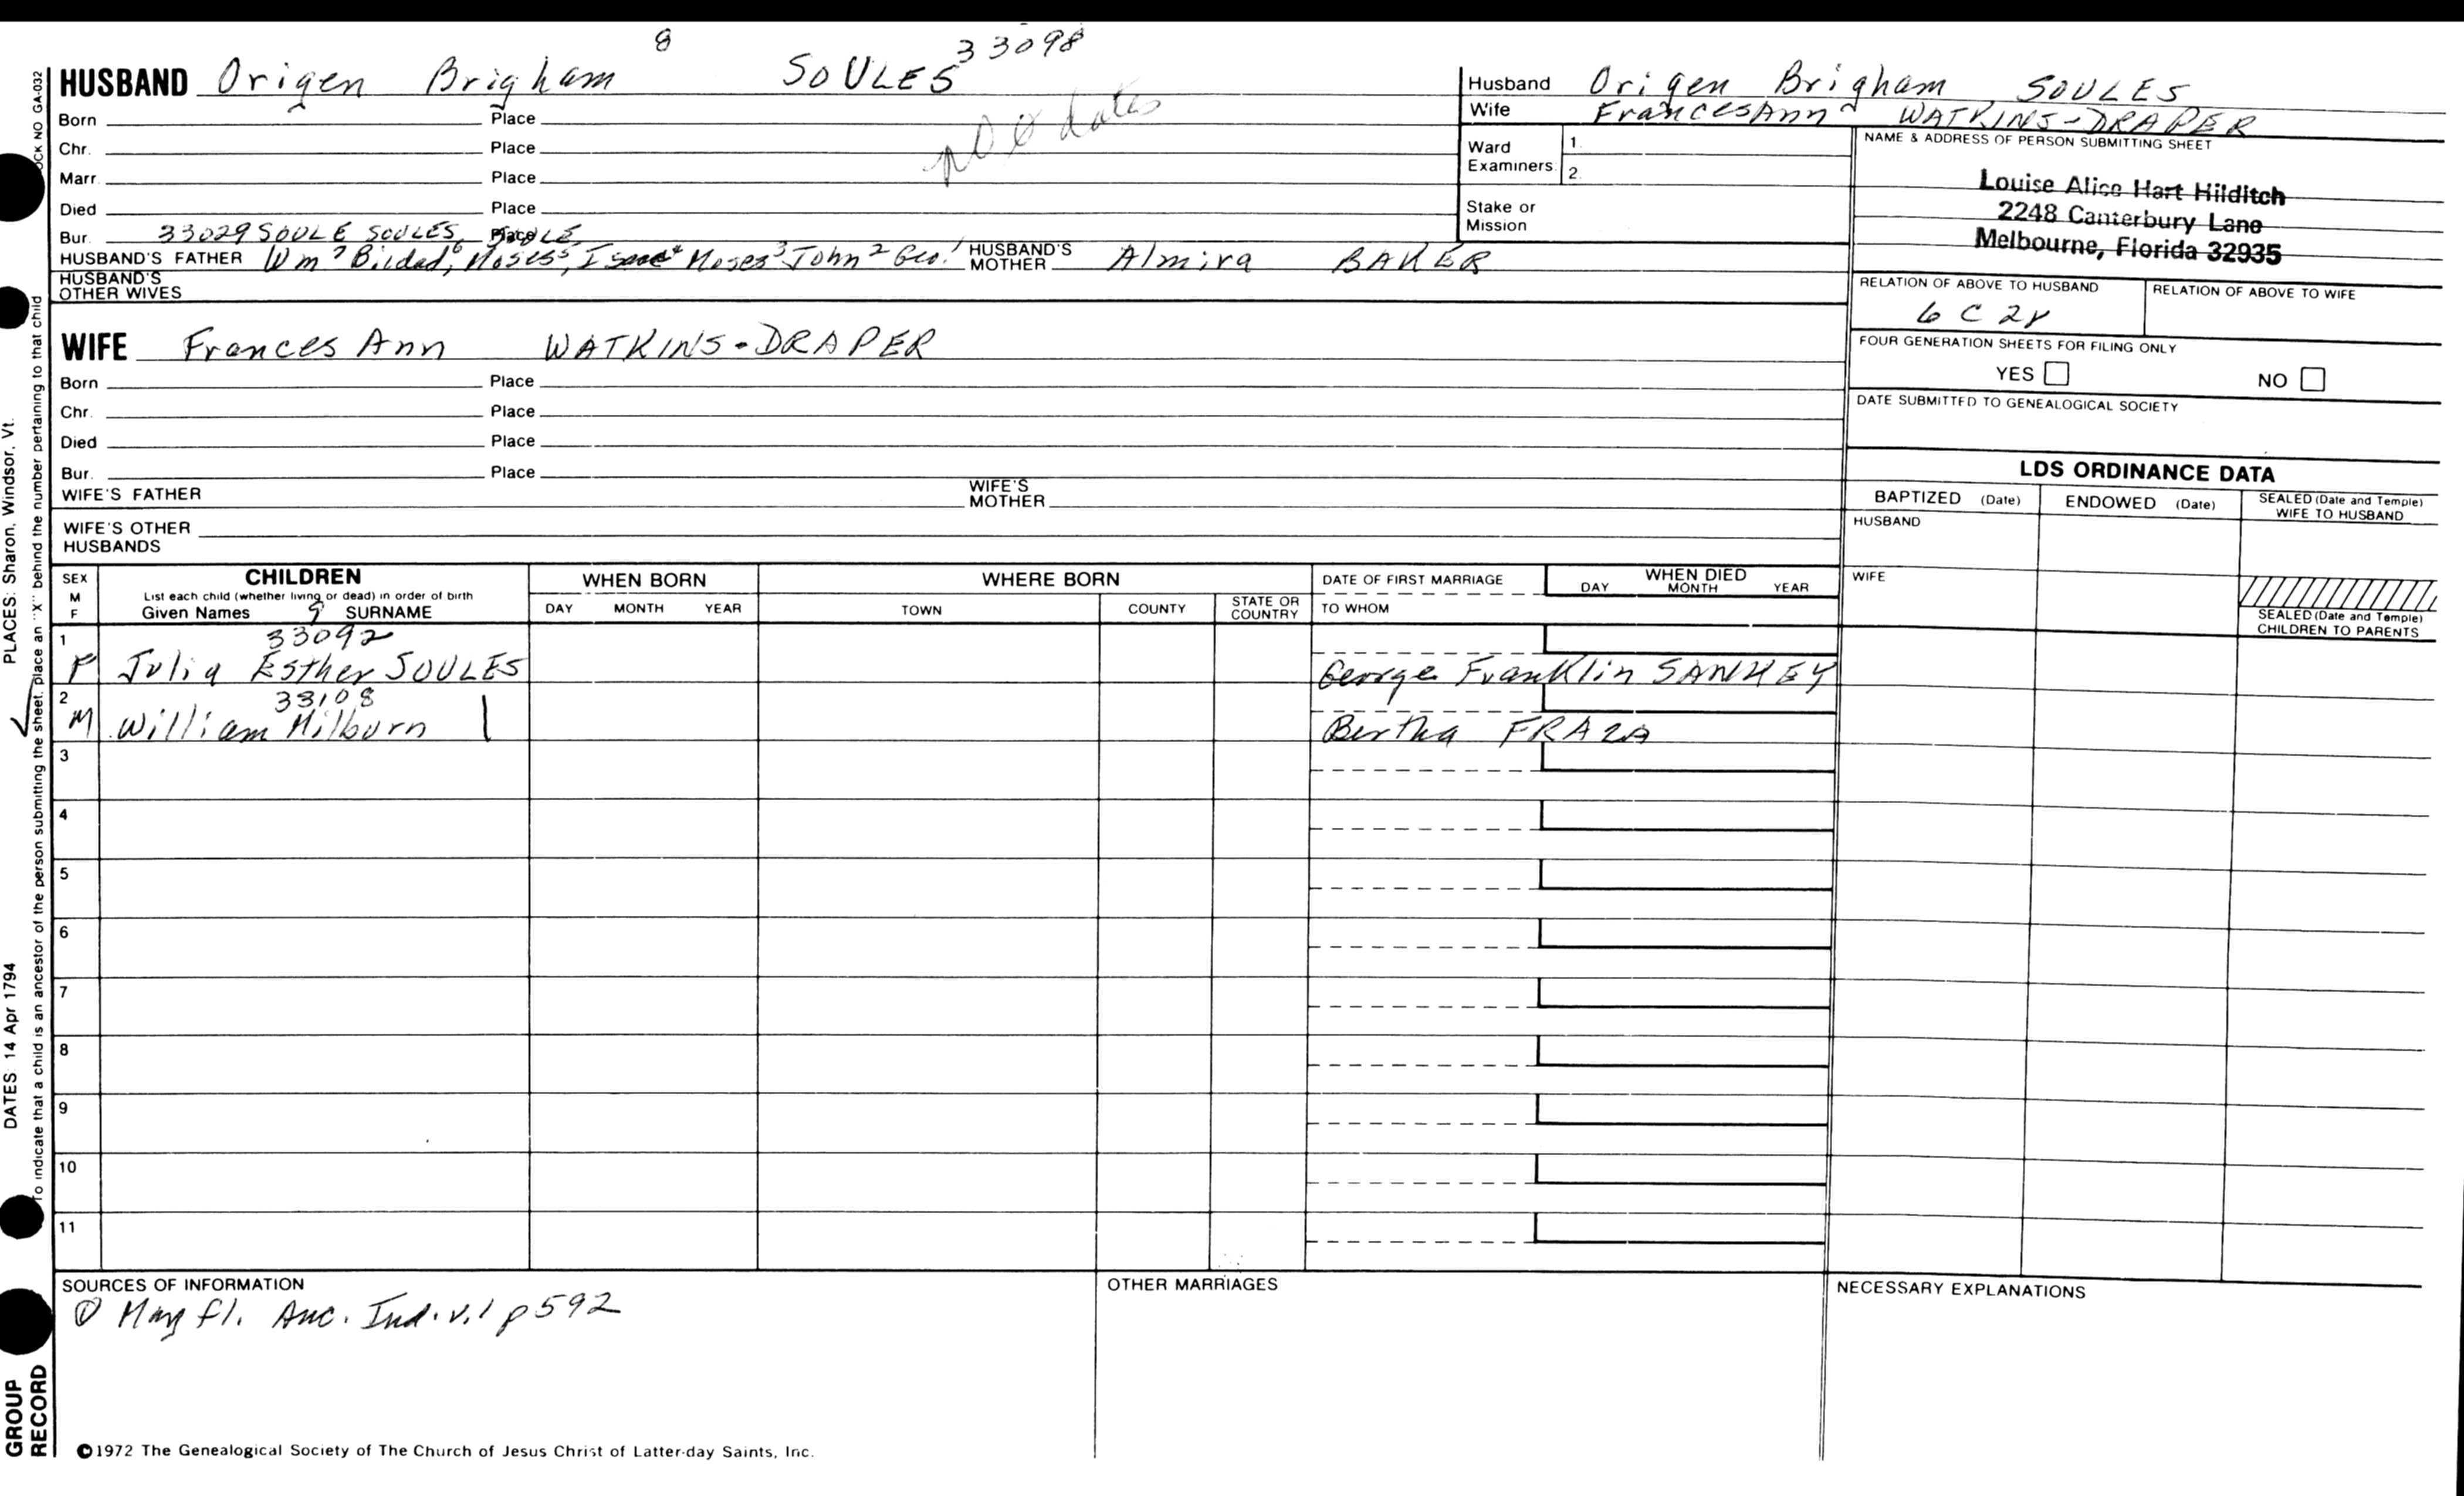 8 33098
HUSBAND Origen Brigham SOULES
Born Place no dates
Chr. Place
Marr. Place
Died Place
33029 SOULE SOULES, SOULE
Bur. Place
HUSBAND'S FATHER Wm 7 Bildad, 6 Moses 5, Isaac 4 Moses 3 John 2 Geo. 1 HUSBAND'S MOTHER Almira BAKER
HUSBAND'S OTHER WIVES
WIFE Frances Ann WATKINS-DRAPER
Born Place
Chr. Place
Died Place
Bur. Place
WIFE'S FATHER WIFE'S MOTHER
WIFE'S OTHER HUSBANDS
Husband Origen Brigham SOULES
Wife Frances Ann WATKINS-DRAPER
Ward Examiners: 1. 2.
Stake or Mission
NAME & ADDRESS OF PERSON SUBMITTING SHEET
Louise Alice Hart Hilditch
2248 Canterbury Lane
Melbourne, Florida 32935
RELATION OF ABOVE TO HUSBAND RELATION OF ABOVE TO WIFE
6 C 2r
FOUR GENERATION SHEETS FOR FILING ONLY
YES NO
DATE SUBMITTED TO GENEALOGICAL SOCIETY
LDS ORDINANCE DATA
BAPTIZED (Date) ENDOWED (Date) SEALED (Date and Temple) WIFE TO HUSBAND
HUSBAND
WIFE
SEALED (Date and Temple) CHILDREN TO PARENTS
SEX M F CHILDREN WHEN BORN WHERE BORN DATE OF FIRST MARRIAGE WHEN DIED
List each child (whether living or dead) in order of birth
Given Names 9 SURNAME DAY MONTH YEAR TOWN COUNTY STATE OR COUNTRY TO WHOM DAY MONTH YEAR
1 33092
F Julia Esther SOULES George Franklin SANKEY
2 33108
M William Milburn Bertha FRAZA
3
4
5
6
7
8
9
10
11
SOURCES OF INFORMATION OTHER MARRIAGES NECESSARY EXPLANATIONS
① May fl. Anc. Ind. v.1 p 592
©1972 The Genealogical Society of The Church of Jesus Christ of Latter-day Saints, Inc.
OCK NO GA-032
To indicate that a child is an ancestor of the person submitting the sheet, place an "X" behind the number pertaining to that child
DATES: 14 Apr 1794 PLACES: Sharon, Windsor, Vt.
GROUP RECORD